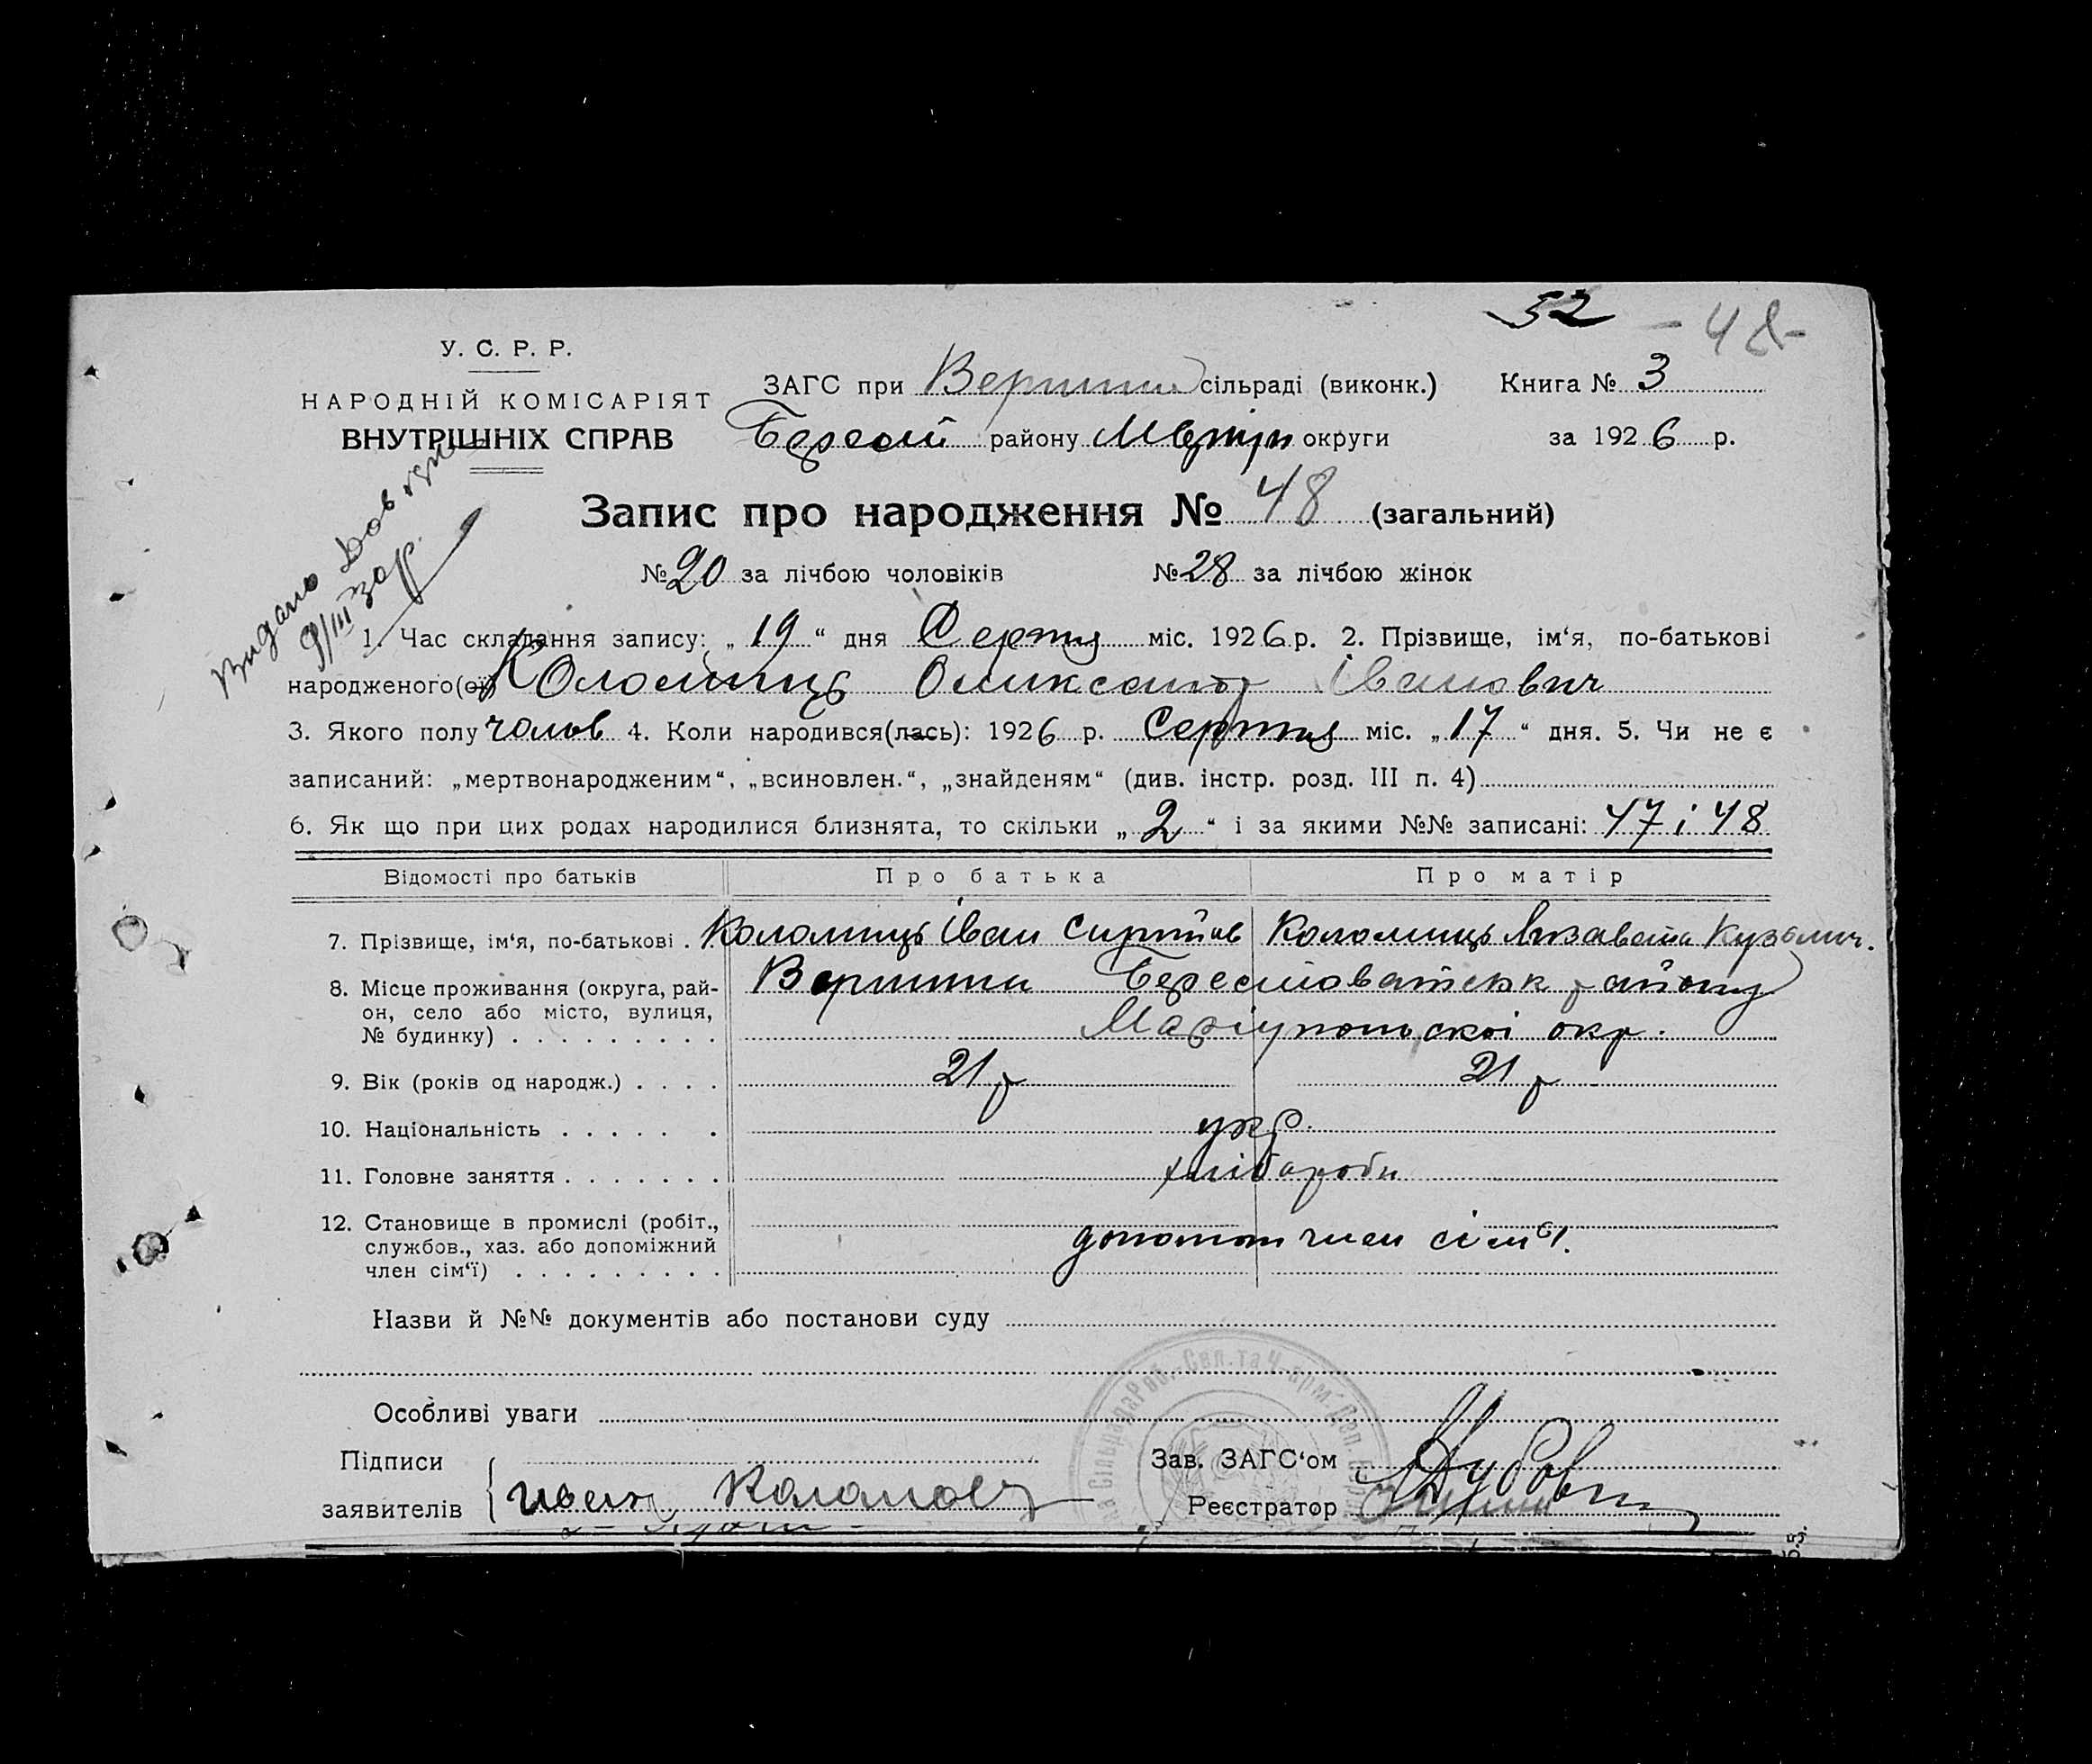 52 - 48 -
У. С. Р. Р.
НАРОДНІЙ КОМІСАРІЯТ
ВНУТРІШНІХ СПРАВ
ЗАГС при Вершин сільраді (виконк.) Книга № 3
Берест району Маріуп округи за 1926 р.
Видано
9/III
Запис про народження № 48 (загальний)
№ 20 за лічбою чоловіків № 28 за лічбою жінок
1. Час складання запису: „19“ дня Серпня міс. 1926 р. 2. Прізвище, ім‘я, по-батькові
народженого(ої) Коломиць Олександр Іванович
3. Якого полу чолов 4. Коли народився(лась): 1926 р. Серпня міс. „17“ дня. 5. Чи не є
записаний: „мертвонародженим“, „всиновлен.“, „знайденям“ (див. інстр. розд. III п. 4)
6. Як що при цих родах народилися близнята, то скільки „2“ і за якими №№ записані: 47 і 48
Відомості про батьків Про батька Про матір
7. Прізвище, ім‘я, по-батькові . Коломиць Іван Коломиць Лизавета Кузьмин.
8. Місце проживання (округа, рай-
он, село або місто, вулиця,
№ будинку) . . . . . . . . .
Вершини Берестоватськ району
Маріупольскоі окр.
9. Вік (років од народж.) . . . . 21 р 21 р
10. Національність . . . . . . укр.
11. Головне заняття . . . . . . . хлібароби
12. Становище в промислі (робіт.,
службов., хаз. або допоміжний
член сім‘ї) . . . . . . . . .
допомом член сімі.
Назви й №№ документів або постанови суду
Особливі уваги
Підписи
заявителів
Зав. ЗАГС‘ом
Реєстратор